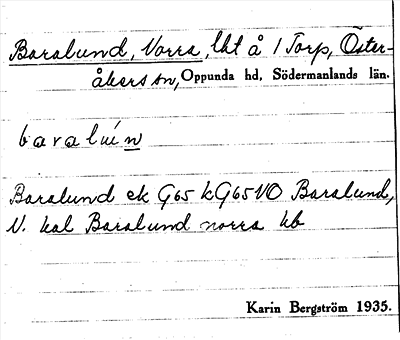 Baralund, Norra, lht å 1 Torp, Öster-
åkers sn, Oppunda hd, Södermanlands län.
baralún
Baralund ek G65 kG65VO Baralund,
N. kal Baralund norra kb
Karin Bergström 1935.